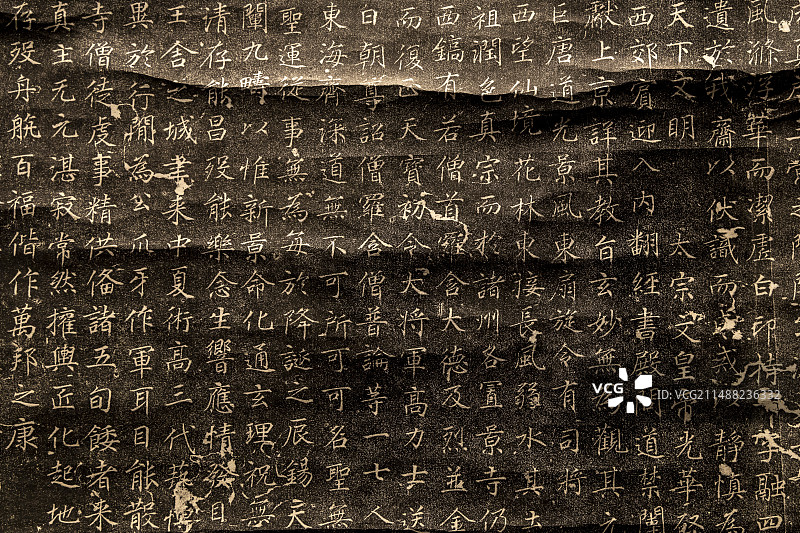 風滌浮華而潔虛白印持十字融四
遺於我齋以伏識而成戒靜慎為
天下文明太宗文皇帝光華啓
西郊賓迎入內翻經書殿問道禁闈
獻上京詳其教旨玄妙無觀其元
巨唐道光景風東扇旋令有司將
西望仙境花林東接長風弱水其土
祖潤色真宗而於諸州各置景寺仍
西鎬有若僧首羅含大德及烈並金
而復正天寶初令大將軍高力士送
日朝尊詔僧羅含僧普論等一七人
東海齊深道無不可所可可名聖無
聖運從事無為每於降誕之辰錫天
闡九疇以惟新景命化通玄理祝無
清存能昌歿能樂念生響應情發目
王舍之城聿来中夏術高三代藝博
異於行間為公爪牙作軍耳目能散
寺僧徒虔事精供俻諸五旬餧者来
真主无元湛寂常然權輿匠化起地
存歿舟航百福偕作萬邦之康
VCG